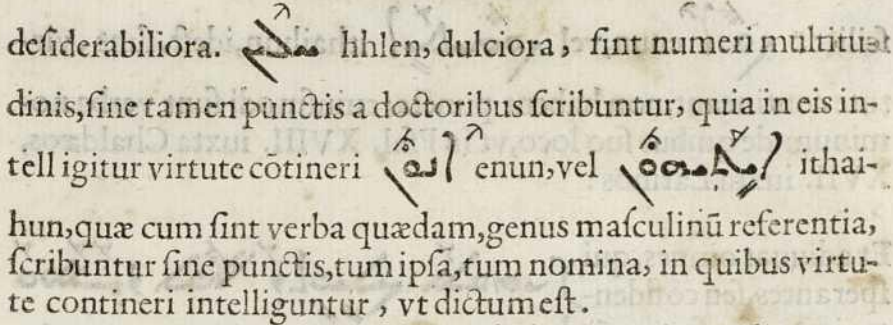 deſiderabiliora. ܚܠܶܝܢ hhlen, dulciora, ſint numeri multitu-
dinis,ſine tamen punctis a doctoribus ſcribuntur, quia in eis in-
tell igitur virtute cōtineri ܐܶܢܽܘܢ enun,vel ܐܺܝܬܰܝܗܽܘܢ ithai-
hun,quæ cum ſint verba quædam,genus maſculinū referentia,
ſcribuntur ſine punctis,tum ipſa,tum nomina, in quibus virtu-
te contineri intelliguntur, vt dictum eſt.